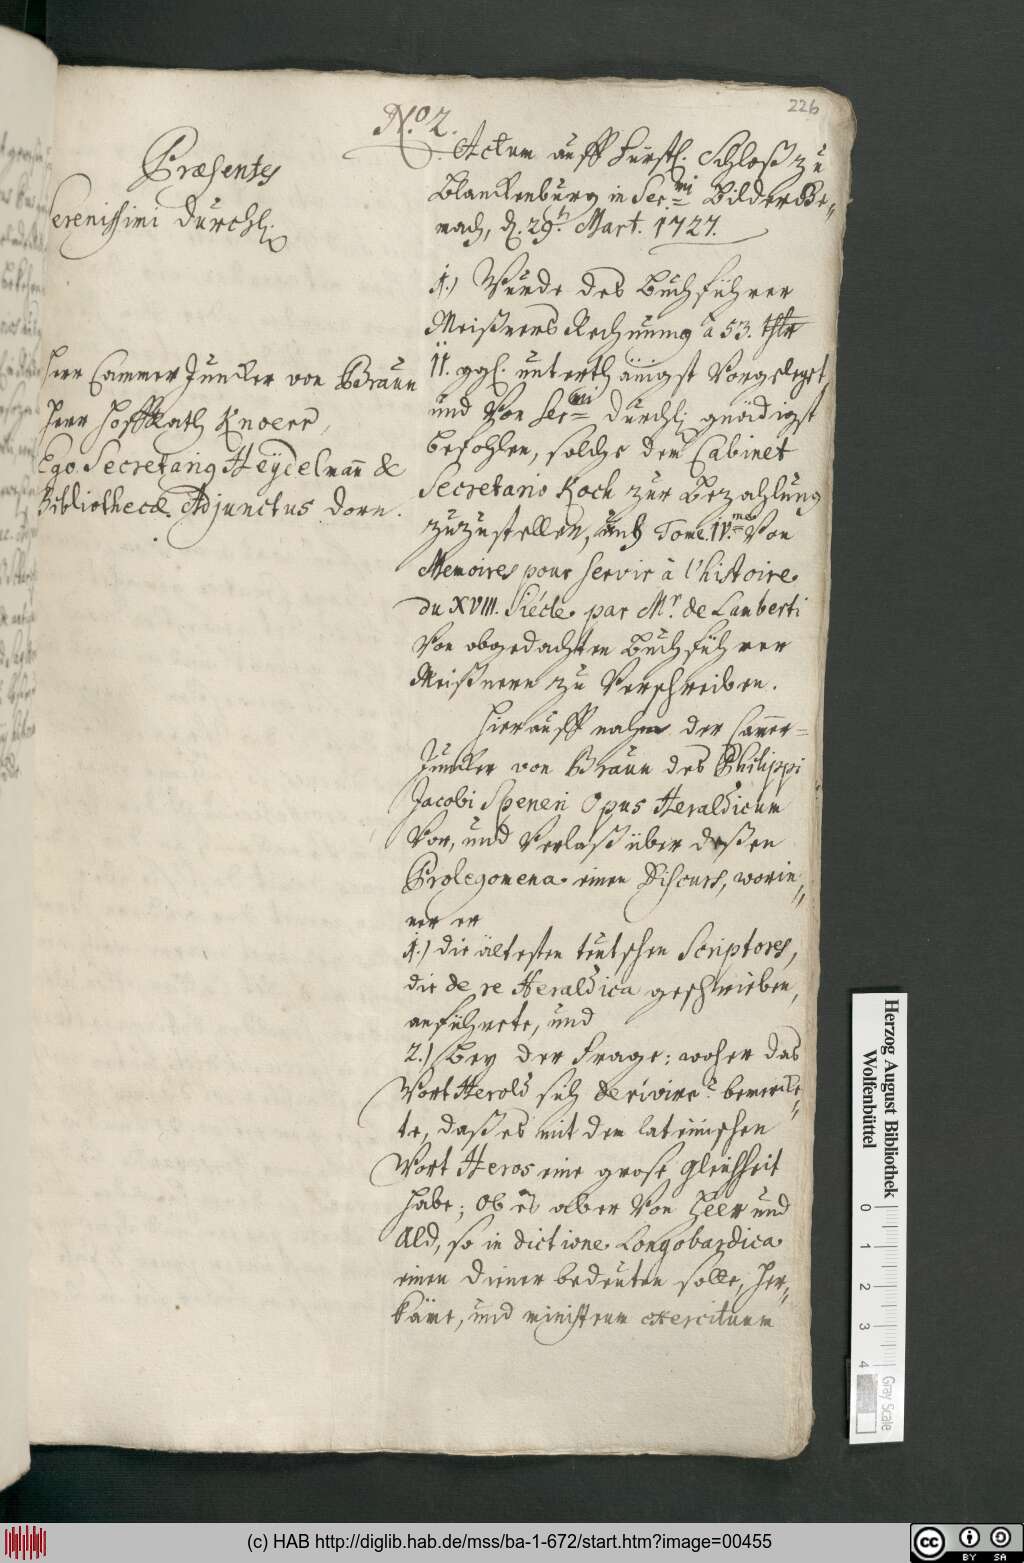 226
No. 2.
Præsentes
Serenissimi Durchl.
Herr Cammer Juncker von Braun
Herr Hoffrath Knoerr,
Ego Secretarius Heydelmañ &
Bibliothecæ Adjunctus Dorn.
Actum auff Fürstl. Schloß zu
Blanckenburg in Ser.mi Bilder Ge-
mach, d. 29.n Mart. 1727.
1.) Wurde des Buchführer
Meißners Rechnung à 53. thlr
11. ggl. unterthänigst vorgeleget,
und von Ser.mi Durchl. gnädigst
befohlen, solche dem Cabinet
Secretario Koch zur Bezahlung
zuzustellen, und Tome. IV.me von
Memoires pour servir à l'histoire
du XVIII. Siécle par Mr. de Lamberti
von obgedachten Buchführer
Meißnern zu verschreiben.
Hierauff nahm der Cam̃er-
Juncker von Braun des Philippi
Jacobi Speneri Opus Heraldicum
vor, und verlaß über deßen
Prolegomena einen Discours, worin-
nen er
1.) die ältesten teutschen Scriptores,
die de re Heraldica geschrieben,
anführete, und
2.) Bey der Frage; woher das
Wort Herold sich derivire? bemerck-
te, daß es mit dem lateinischen
Wort Heros eine große Gleichheit
habe; ob es aber von Heer und
Ald, so in dictione Longobardica
einen Diener bedeuten solle, her-
käme, und ministrum exercituum
Herzog August Bibliothek
Wolfenbüttel
0 1 2 3 4
Gray Scale
(c) HAB http://diglib.hab.de/mss/ba-1-672/start.htm?image=00455
cc BY SA